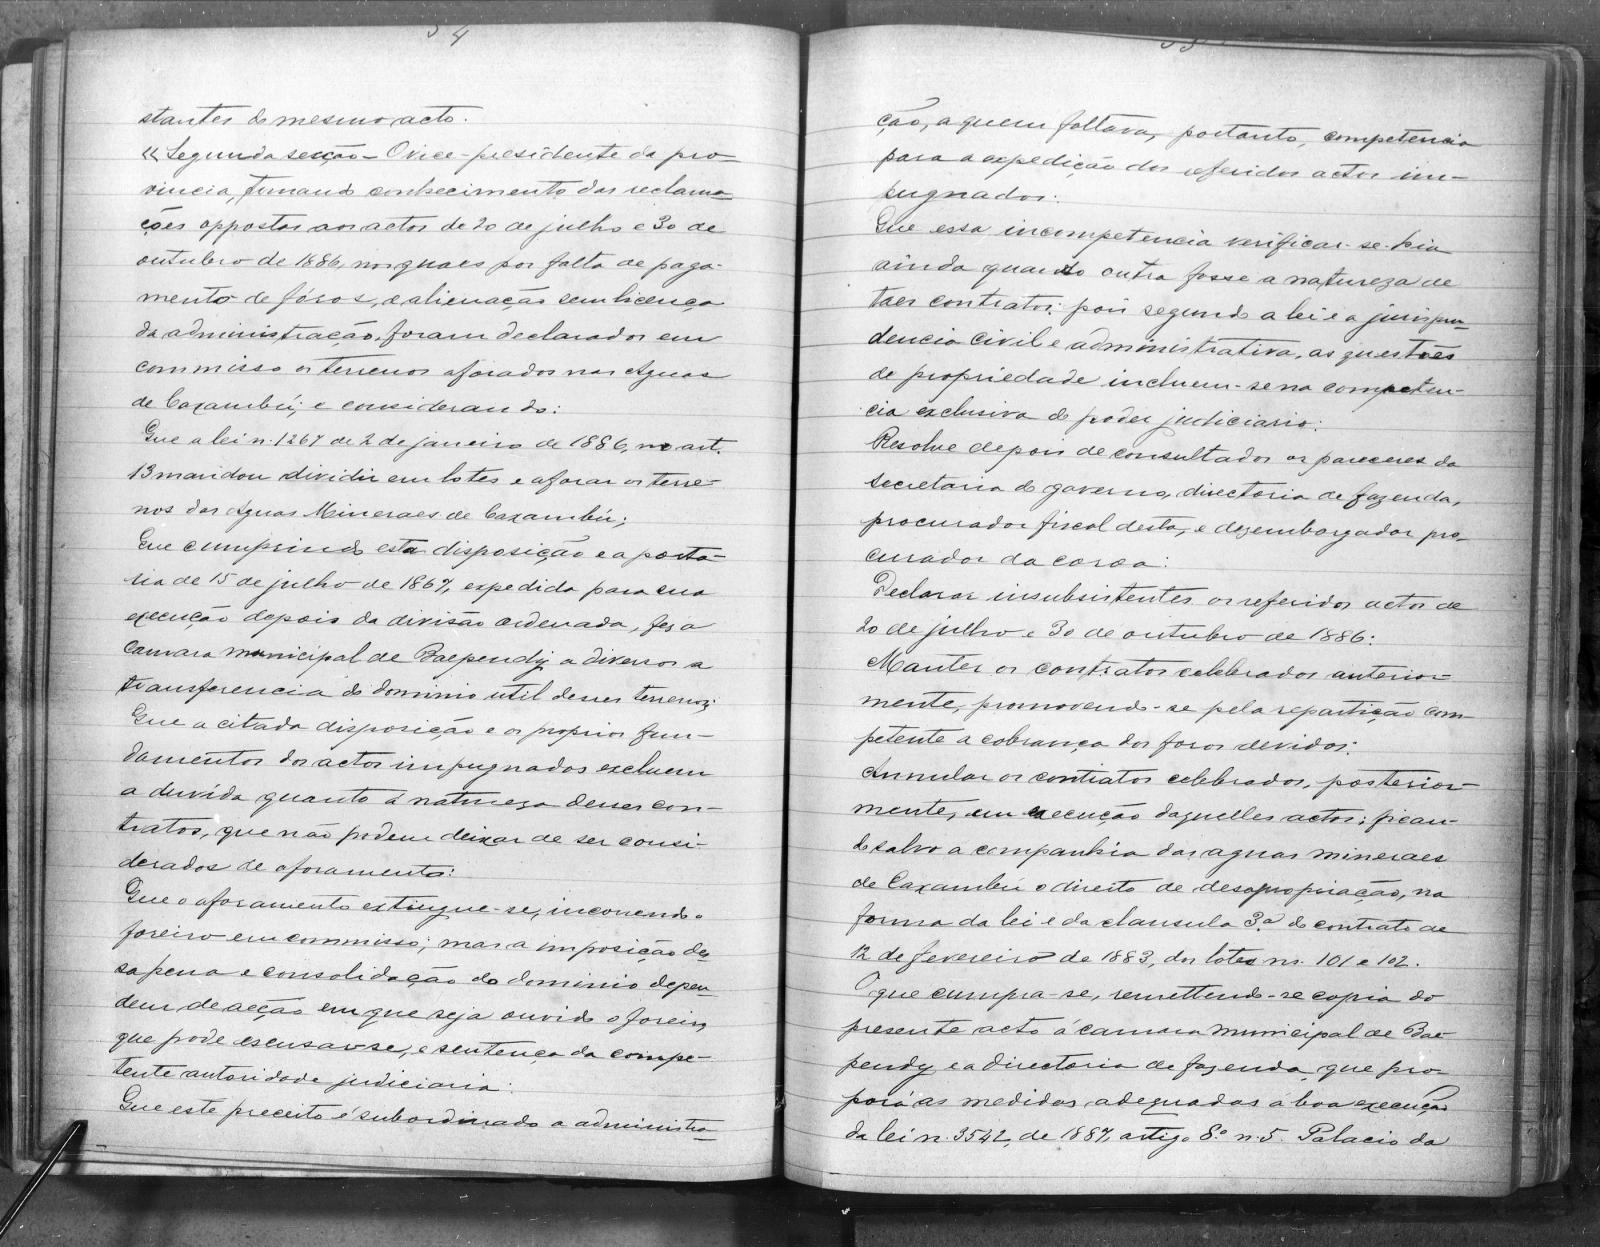 54
stantes do mesmo acto.
«Segunda secção – O vice-presidente da pro-
vincia, tomando conhecimento das reclama-
ções oppostas aos actos de 20 de julho e 30 de
outubro de 1886, nos quaes por falta de paga-
mento de fóros, e alienação sem licença
da administração, foram declarados em
commisso os terrenos aforados nas Aguas
de Caxambú; e considerando:
Que a lei n. 1267 de 2 de janeiro de 1886, no art.
13 mandou dividir em lotes e aforar os terre-
nos das Aguas Mineraes de Caxambú;
Que cumprindo esta disposição e a porta-
ria de 15 de julho de 1867, expedida para sua
execução depois da divisão ordenada, fez a
camara municipal de Baependy a diversos a
transferencia do dominio util desses terrenos;
Que a citada disposição e os proprios fun-
damentos dos actos impugnados excluem
a duvida quanto á natureza desses con-
tratos, que não podem deixar de ser consi-
derados de aforamento:
Que o aforamento extingue-se, incorrendo o
foreiro em commisso; mas a imposição des-
sa pena e consolidação do dominio depen-
dem de acção em que seja ouvido o foreiro,
que pode escusar-se, e sentença da compe-
tente autoridade judiciaria:
Que este preceito é subordinado a administra-
55
ção, a quem faltava, portanto, competencia
para a expedição dos referidos actos im-
pugnados:
Que essa incompetencia verificar-se-hia
ainda quando outra fosse a natureza de
taes contratos: pois segundo a lei e a jurispru-
dencia civil e administrativa, as questões
de propriedade incluem-se na competen-
cia exclusiva do poder judiciario:
Resolve depois de consultados os pareceres da
secretaria do governo, directoria de fazenda,
procurador fiscal desta, e dezembargador pro-
curador da coroa:
Declarar insubsistentes os referidos actos de
20 de julho e 30 de outubro de 1886:
Manter os contratos celebrados anterior-
mente, promovendo-se pela repartição com-
petente a cobrança dos foros devidos:
Annular os contratos celebrados, posterior-
mente, em execução daquelles actos; fican-
do salvo a companhia das aguas mineraes
de Caxambú o direito de desapropriação, na
forma da lei e da clausula 3.ª do contrato de
12 de fevereiro de 1883, dos lotes ns. 101 e 102.
O que cumpra-se, remettendo-se copia do
presente acto á camara municipal de Bae-
pendy e a directoria de fazenda, que pro-
porá as medidas adequadas á boa execução
da lei n. 3542, de 1887, artigo 8.º n. 5. Palacio da